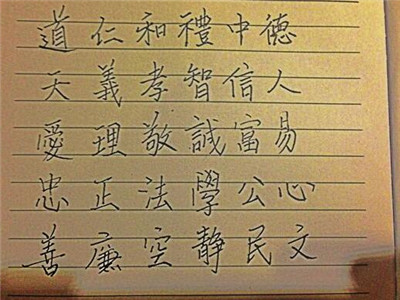 道仁和禮中德
天義孝智信人
愛理敬誠富易
忠正法學公心
善廉空靜民文